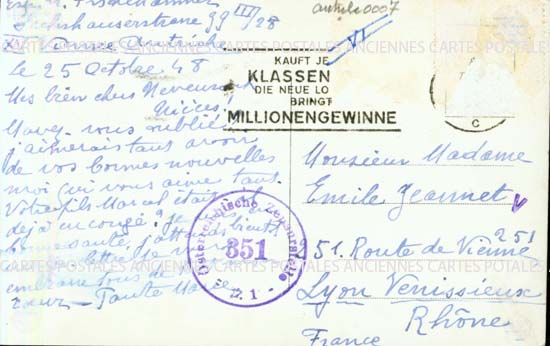 Sechshauserstrasse 39 III/28
XV Vienne Autriche
Le 25 Octobre 48
Mes bien chers Neveux et
Nièces,
M'avez-vous oubliée
j'aimerais tant avoir
de vos bonnes nouvelles
moi qui vous aime tant.
Votre fils Marcel était-il
déjà en congé?
bonne santé, j'attends bientôt
lettre Je vous
embrasse tous
cœur – Tante Marie
article0007
VI
KAUFT JE
KLASSEN
DIE NEUE LO
BRINGT
MILLIONENGEWINNE
C
Österreichische Zensurstelle
351
Monsieur Madame
Emile Jeannet
251
251. Route de Vienne
Lyon Venissieux
Rhône
France
ANCIENNES CARTES POSTALES ANCIENNES CARTES POSTALES
CARTES POSTALES ANCIENNES CARTES POSTALES